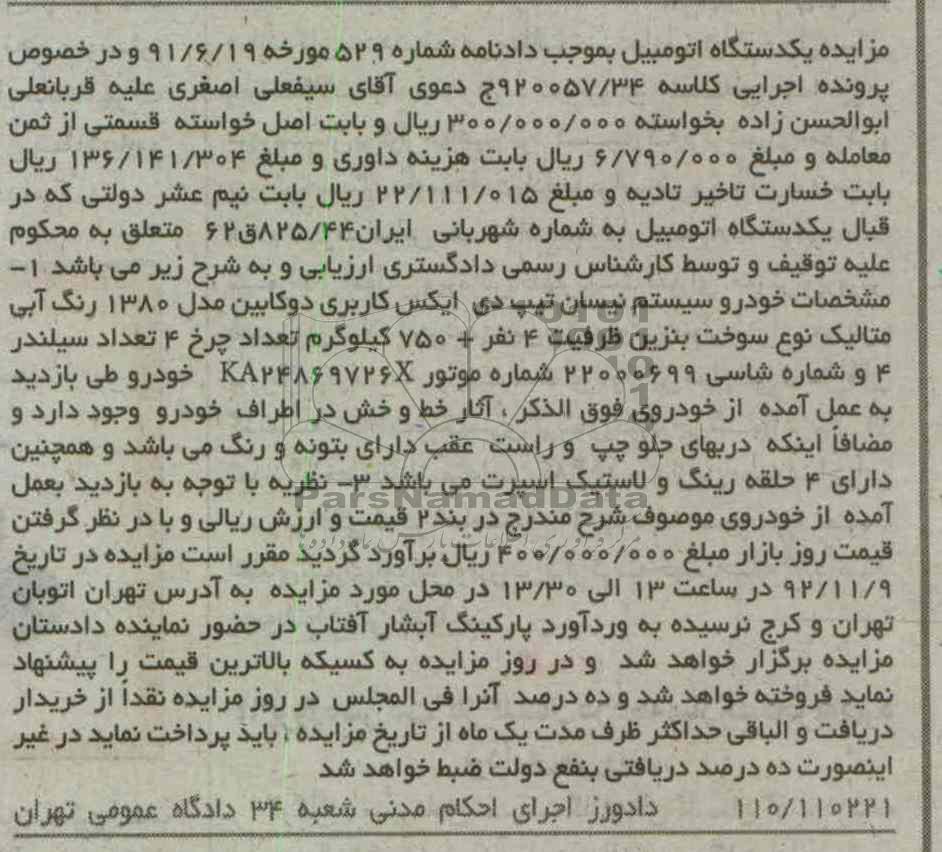 مزایده یکدستگاه اتومبیل بموجب دادنامه شماره ۵۲۹ مورخه ۹۱/۶/۱۹ و در خصوص
پرونده اجرایی کلاسه ۹۲۰۰۵۷/۳۴ج دعوی آقای سیفعلی اصغری علیه قربانعلی
ابوالحسن زاده بخواسته ۳۰۰/۰۰۰/۰۰۰ ریال و بابت اصل خواسته قسمتی از ثمن
معامله و مبلغ ۶/۷۹۰/۰۰۰ ریال بابت هزینه داوری و مبلغ ۱۳۶/۱۴۱/۳۰۴ ریال
بابت خسارت تاخیر تادیه و مبلغ ۲۲/۱۱۱/۰۱۵ ریال بابت نیم عشر دولتی که در
قبال یکدستگاه اتومبیل به شماره شهربانی ایران۸۲۵/۴۴ق۶۲ متعلق به محکوم
علیه توقیف و توسط کارشناس رسمی دادگستری ارزیابی و به شرح زیر می باشد ۱-
مشخصات خودرو سیستم نیسان تیپ دی ایکس کاربری دوکابین مدل ۱۳۸۰ رنگ آبی
متالیک نوع سوخت بنزین ظرفیت ۴ نفر + ۷۵۰ کیلوگرم تعداد چرخ ۴ تعداد سیلندر
۴ و شماره شاسی ۲۲۰۰۰۶۹۹ شماره موتور KA۲۴۸۶۹۷۲۶X خودرو طی بازدید
به عمل آمده از خودروی فوق الذکر ، آثار خط و خش در اطراف خودرو وجود دارد و
مضافاً اینکه دربهای جلو چپ و راست عقب دارای بتونه و رنگ می باشد و همچنین
دارای ۴ حلقه رینگ و لاستیک اسپرت می باشد ۳- نظریه با توجه به بازدید بعمل
ParsNamadData
آمده از خودروی موصوف شرح مندرج در بند۲ قیمت و ارزش ریالی و با در نظر گرفتن
قیمت روز بازار مبلغ ۴۰۰/۰۰۰/۰۰۰ ریال برآورد گردید مقرر است مزایده در تاریخ
۹۲/۱۱/۹ در ساعت ۱۳ الی ۱۳/۳۰ در محل مورد مزایده به آدرس تهران اتوبان
تهران و کرج نرسیده به وردآورد پارکینگ آبشار آفتاب در حضور نماینده دادستان
مزایده برگزار خواهد شد و در روز مزایده به کسیکه بالاترین قیمت را پیشنهاد
نماید فروخته خواهد شد و ده درصد آنرا فی المجلس در روز مزایده نقداً از خریدار
دریافت و الباقی حداکثر ظرف مدت یک ماه از تاریخ مزایده ، باید پرداخت نماید در غیر
اینصورت ده درصد دریافتی بنفع دولت ضبط خواهد شد
۱۱۰/۱۱۰۲۲۱ دادورز اجرای احکام مدنی شعبه ۳۴ دادگاه عمومی تهران